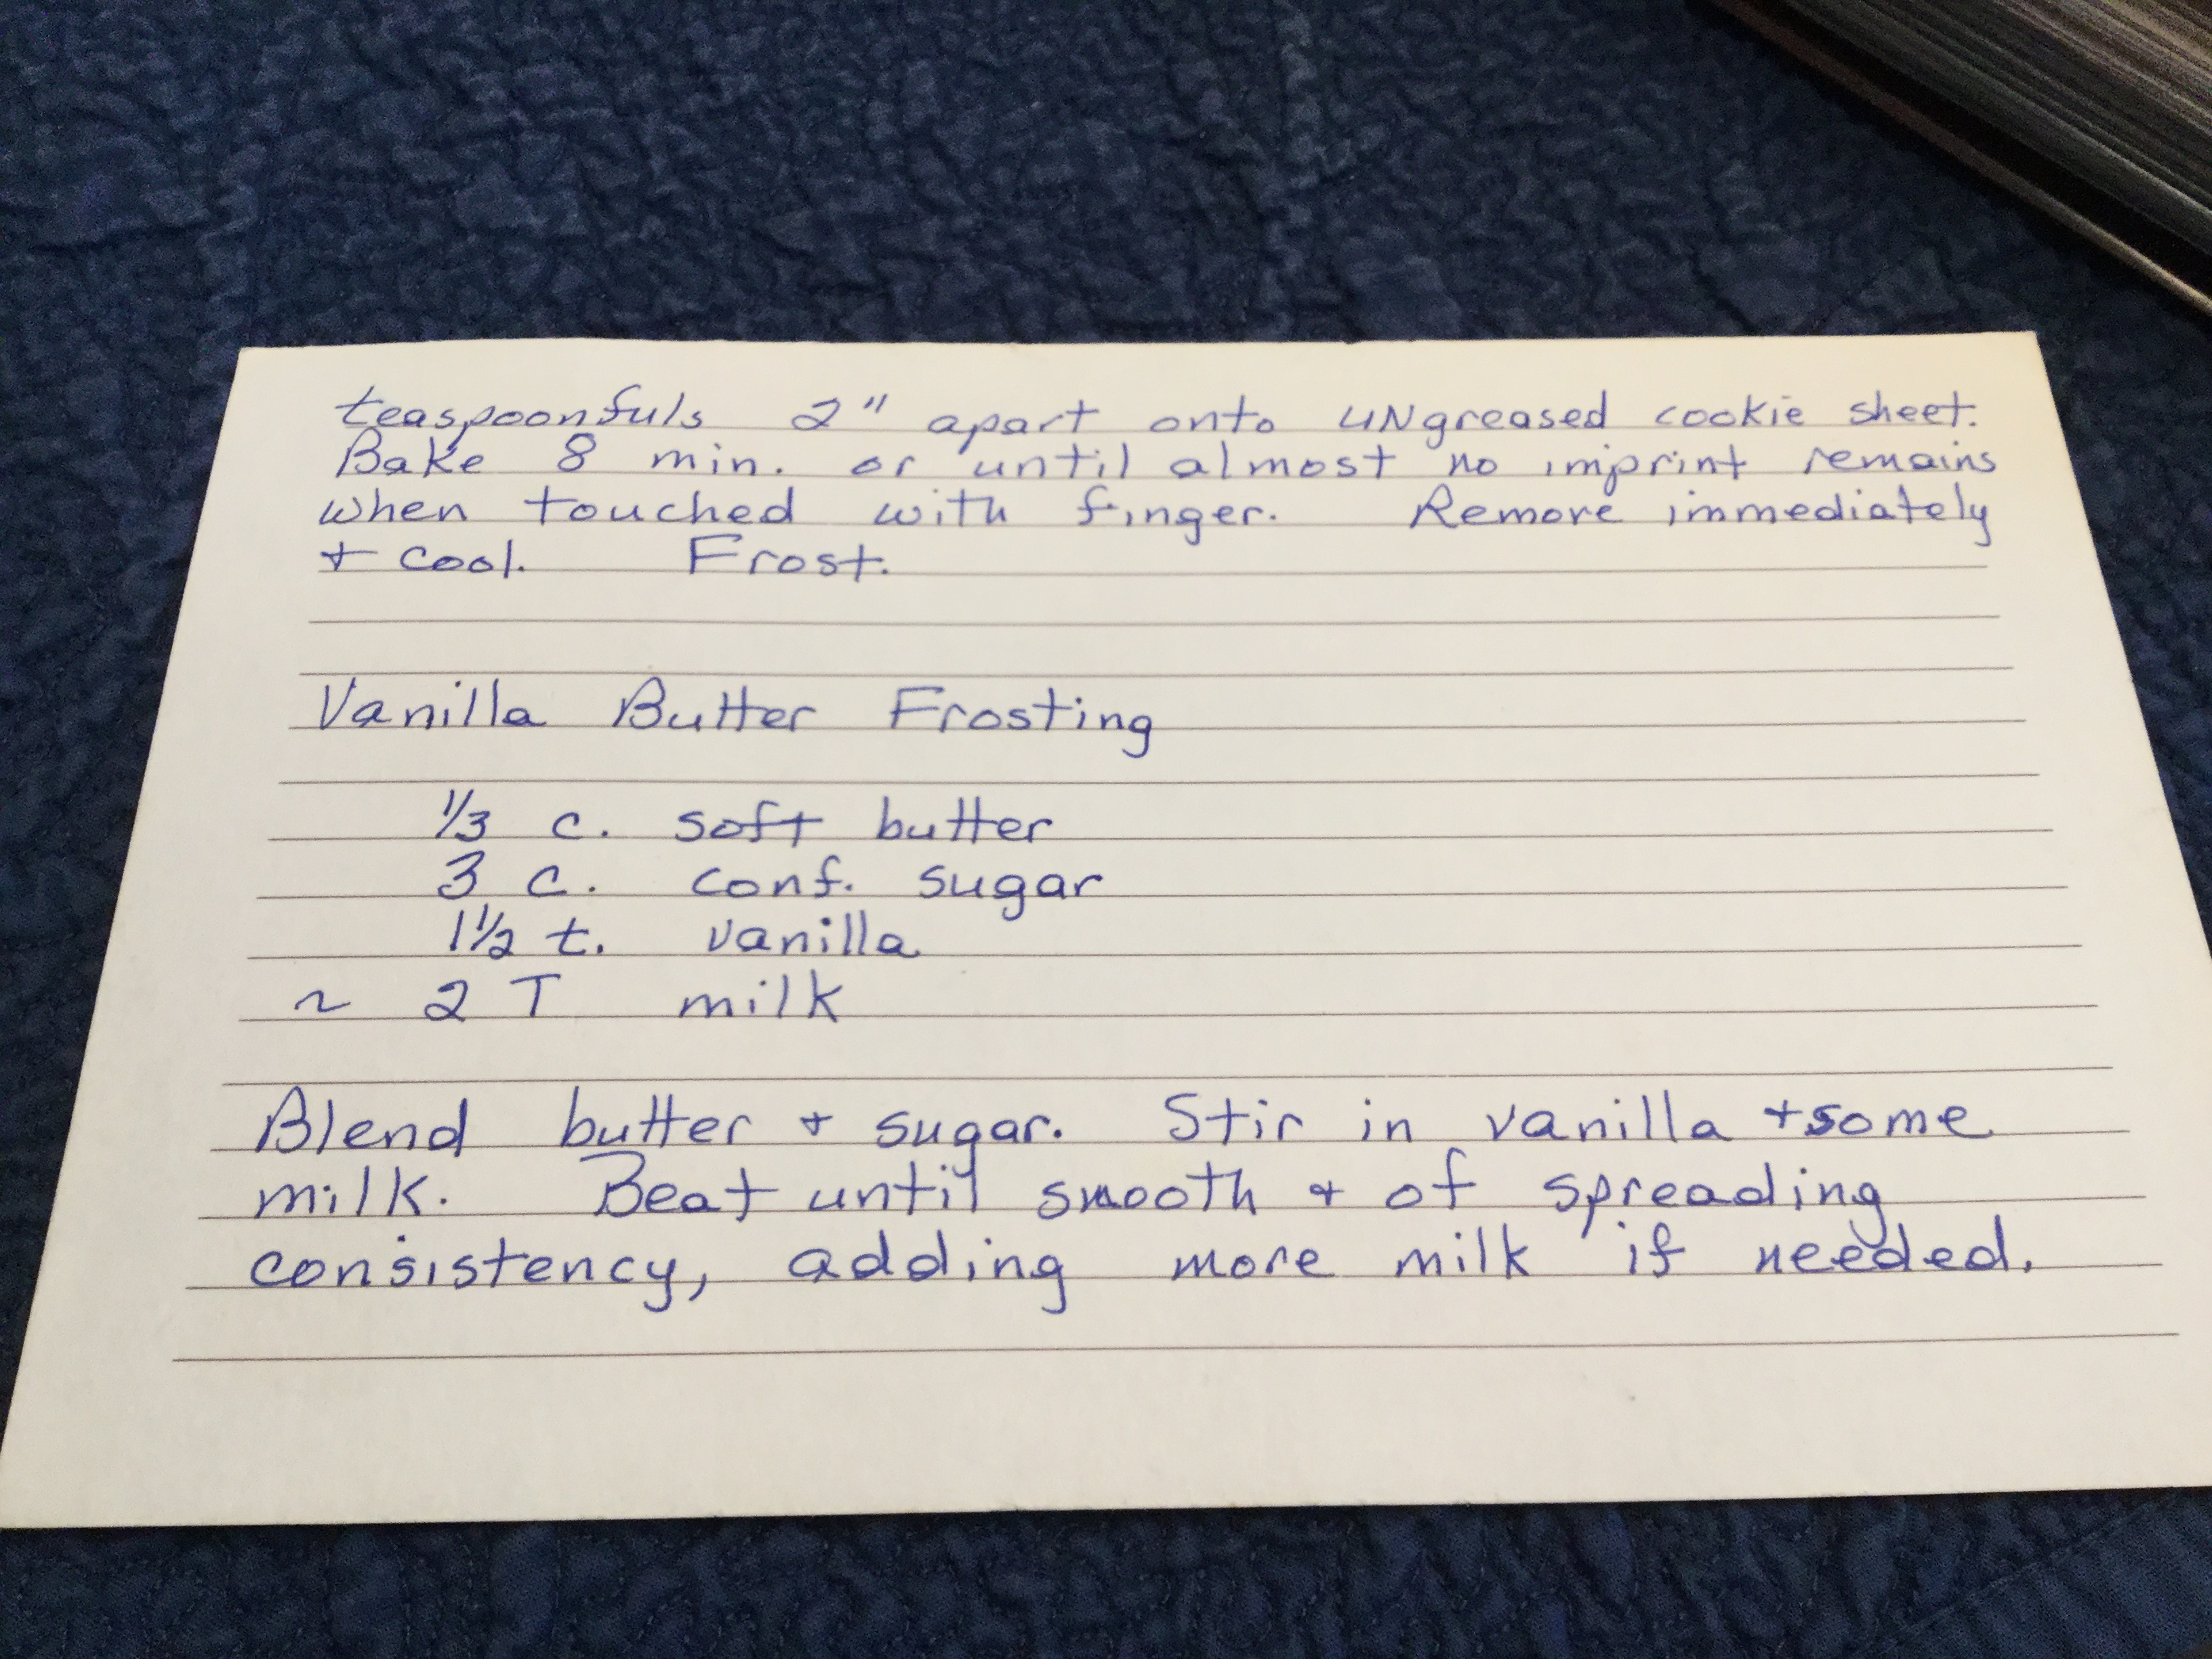 teaspoonfuls 2" apart onto UNgreased cookie sheet.
Bake 8 min. or until almost no imprint remains
when touched with finger. Remove immediately
+ cool. Frost.
Vanilla Butter Frosting
1/3 c. soft butter
3 c. conf. sugar
1 1/2 t. vanilla
~ 2 T milk
Blend butter + sugar. Stir in vanilla + some
milk. Beat until smooth + of spreading
consistency, adding more milk if needed.